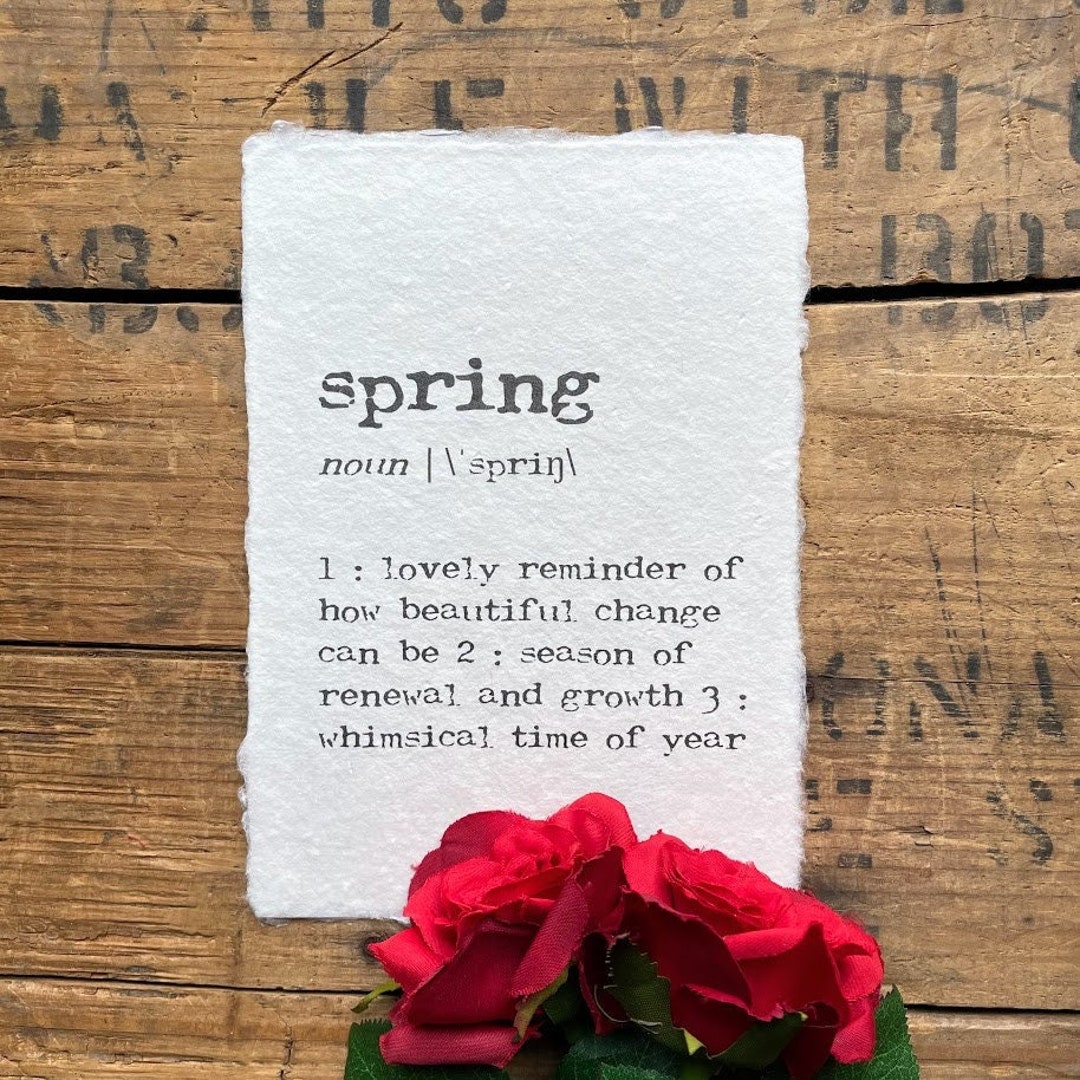 WITH
spring
noun | \ˈspriŋ\
1 : lovely reminder of
how beautiful change
can be 2 : season of
renewal and growth 3 :
whimsical time of year